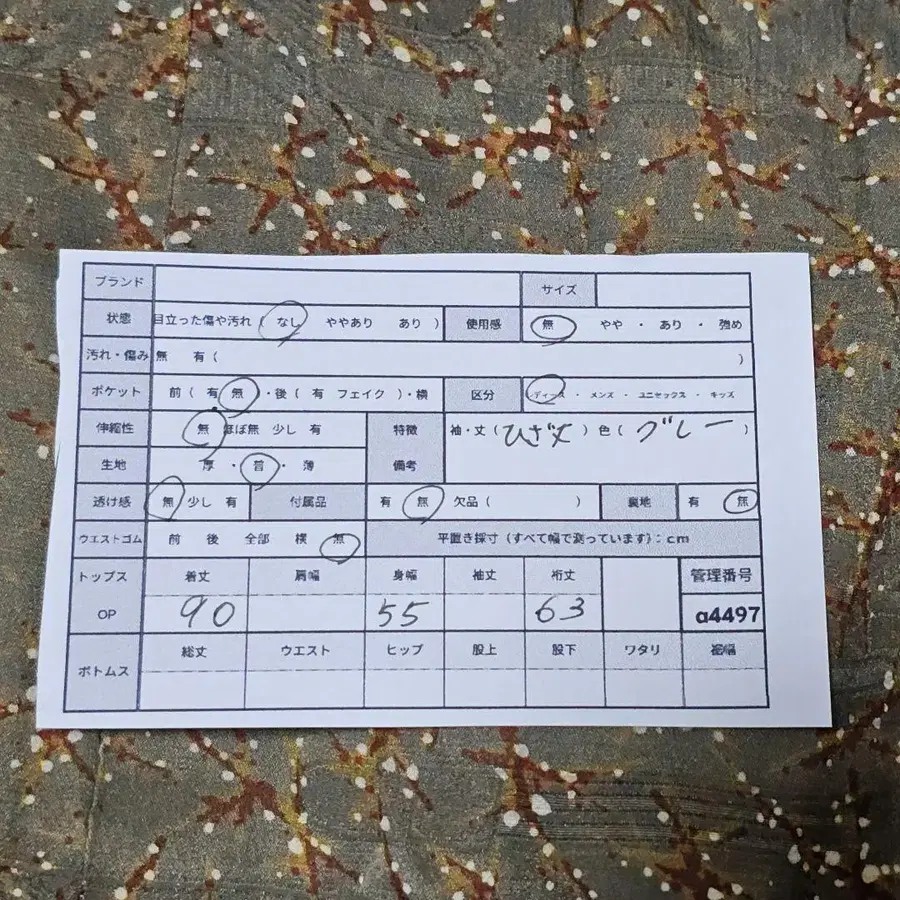 ブランド サイズ
状態 目立った傷や汚れ ( なし ややあり あり ) 使用感 無 やや ・ あり ・ 強め
汚れ・傷み 無 有 ( )
ポケット 前 ( 有 無 ) ・後 ( 有 フェイク ) ・横 区分 レディース ・ メンズ ・ ユニセックス ・ キッズ
伸縮性 無 ほぼ無 少し 有 特徴 袖・丈 ( ひざ丈 ) 色 ( グレー )
生地 厚 ・ 普 ・ 薄 備考
透け感 無 少し 有 付属品 有 無 欠品 ( ) 裏地 有 無
ウエストゴム 前 後 全部 横 無 平置き採寸 (すべて幅で測っています) : cm
トップス 着丈 肩幅 身幅 袖丈 裄丈 管理番号
OP 90 55 63 a4497
ボトムス 総丈 ウエスト ヒップ 股上 股下 ワタリ 裾幅